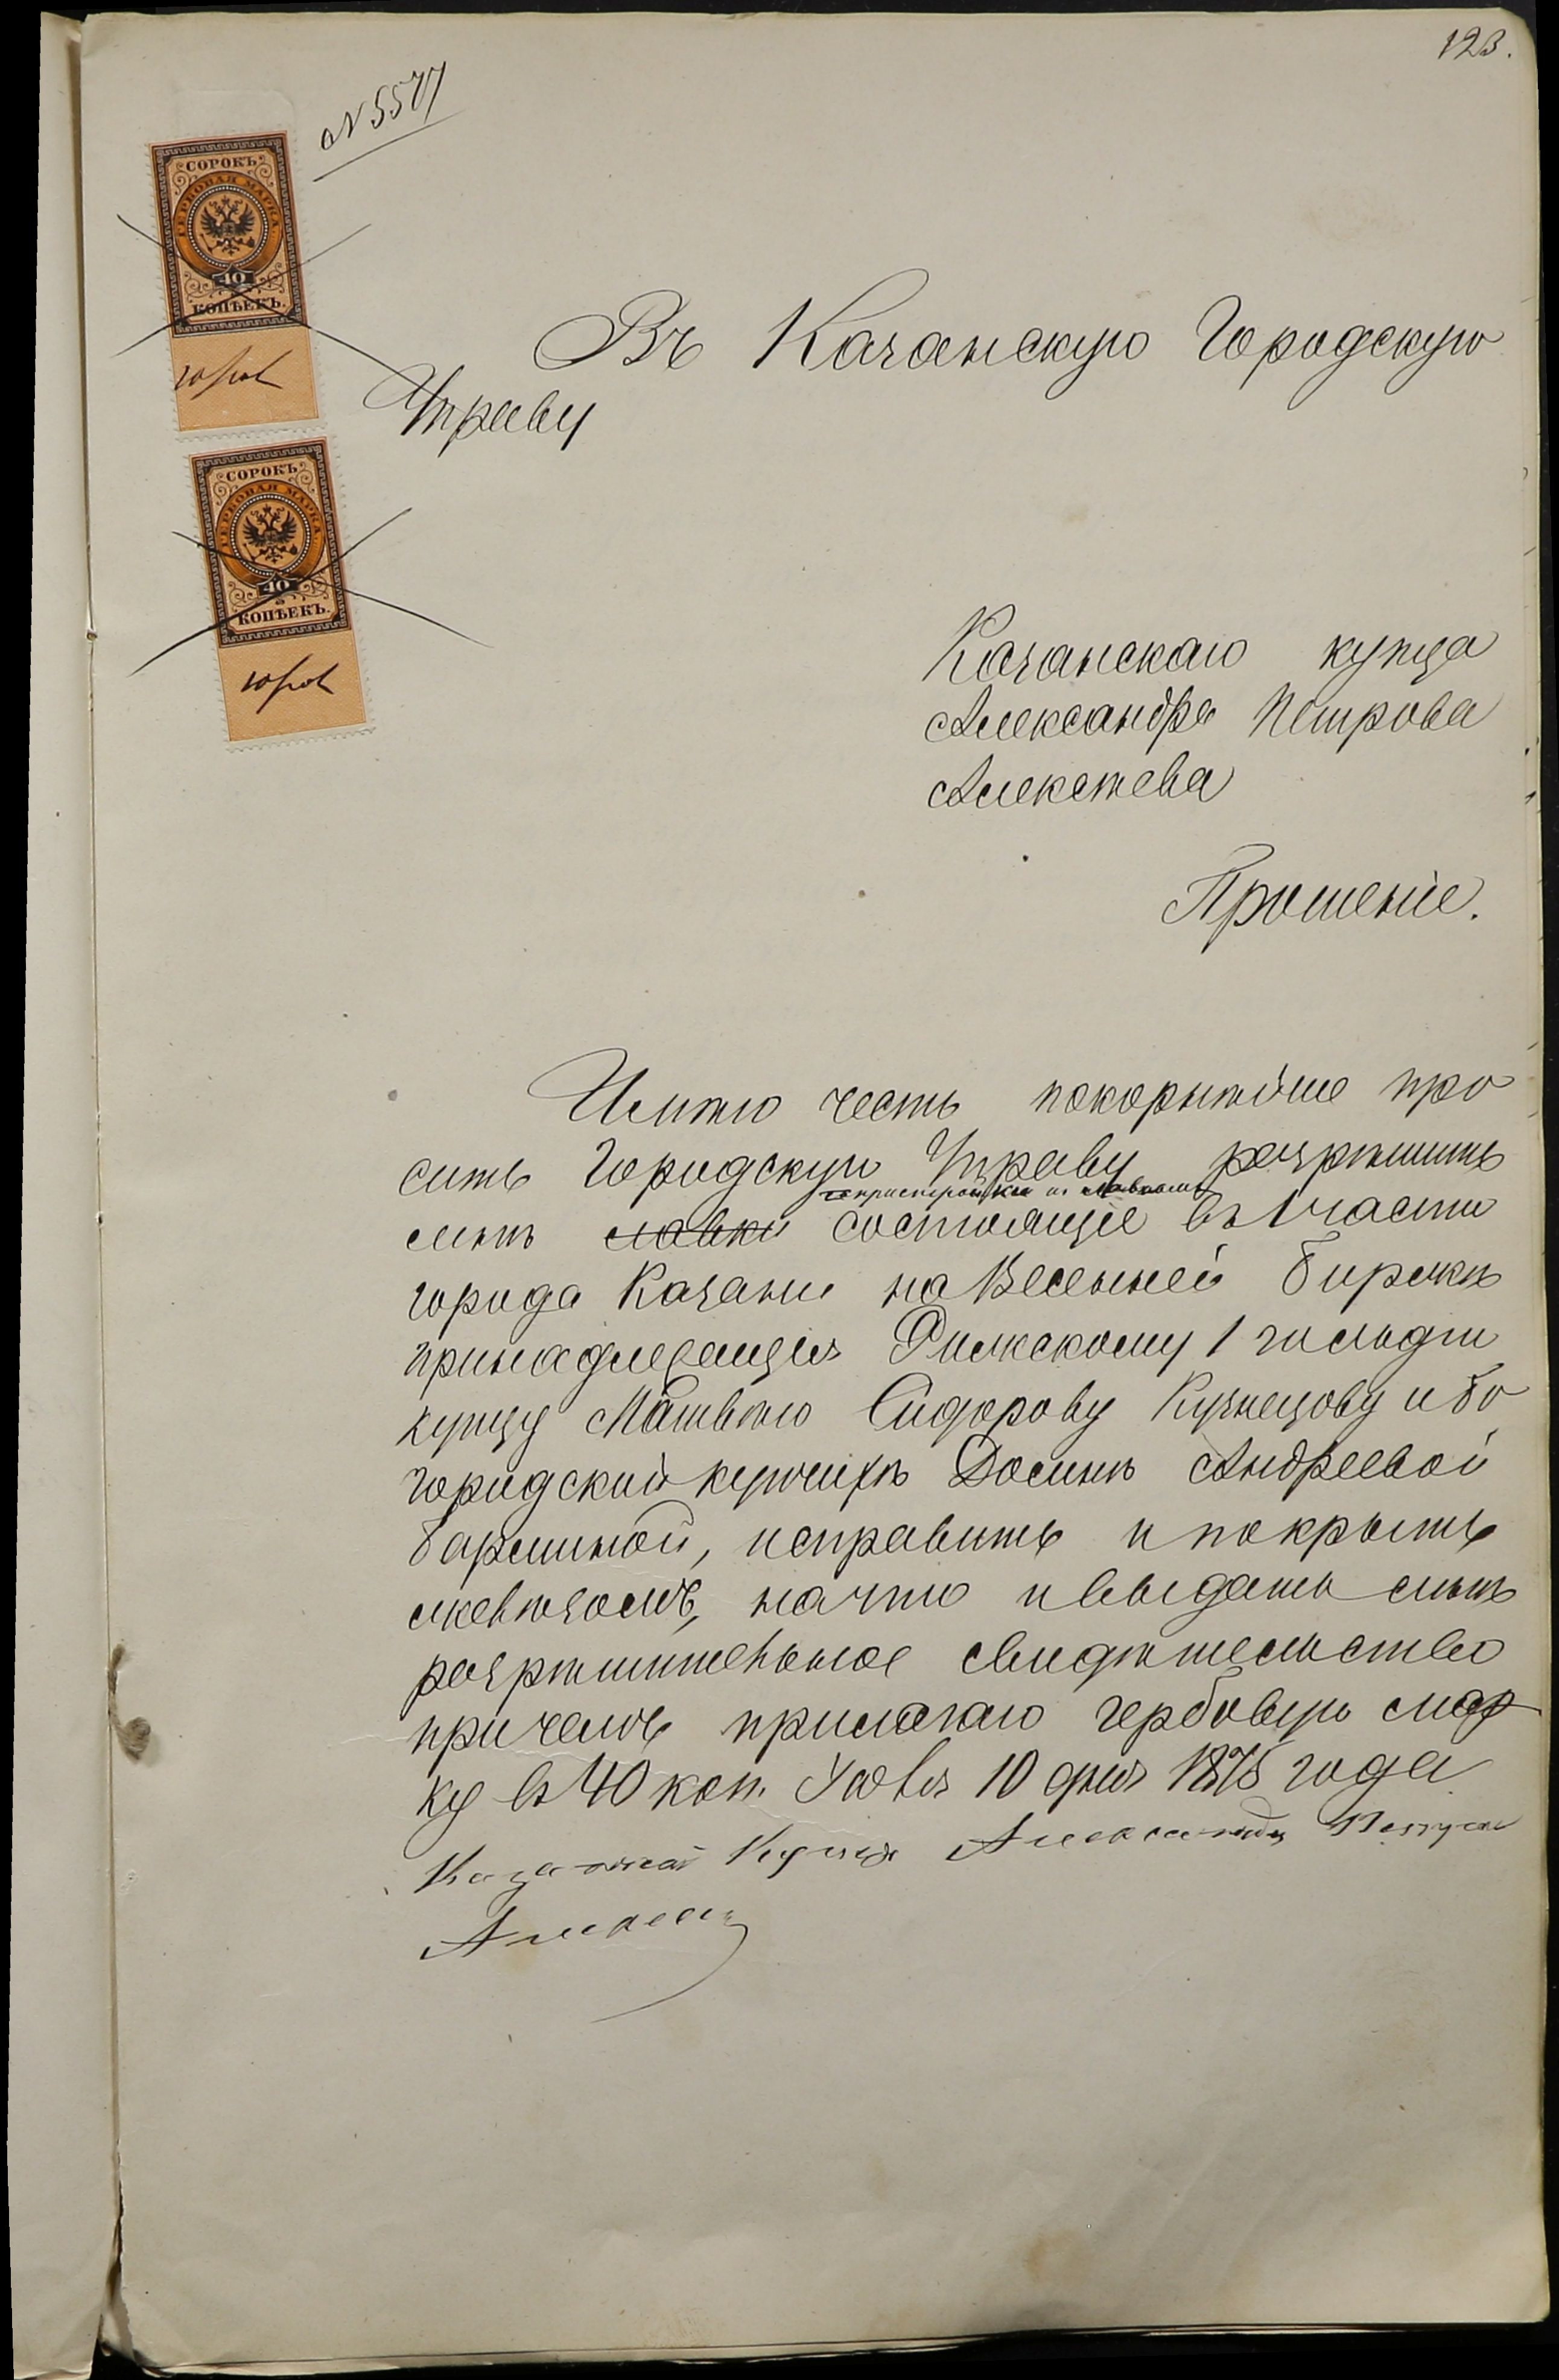 123.
№ 5577
СОРОКЪ
ГЕРБОВАЯ МАРКА
40
КОПѢЕКЪ.
СОРОКЪ
ГЕРБОВАЯ МАРКА
40
КОПѢЕКЪ.
Въ Казанскую Городскую
Управу
Казанскаго купца
Александра Петрова
Алексѣева
Прошеніе.
Имѣю честь покорнѣйше про
сить Городскую Управу разрѣшить
пристройки къ лавкамъ
мнѣ лавки состоящіе въ 1 части
города Казани на Весенней биржѣ
принадлежащія Рижскому 1 гильдіи
купцу Матвѣю Сидорову Кузнецову и бо
городской купчихѣ Андреевой
исправить и покрыть
желѣзомъ, на что и выдать мнѣ
разрѣшительное свидѣтельство
при чемъ прилагаю гербовую мар
ку въ 40 коп. Июля 10 дня 1875 года
Казанской Купецъ Александръ Петровъ
Алексеевъ